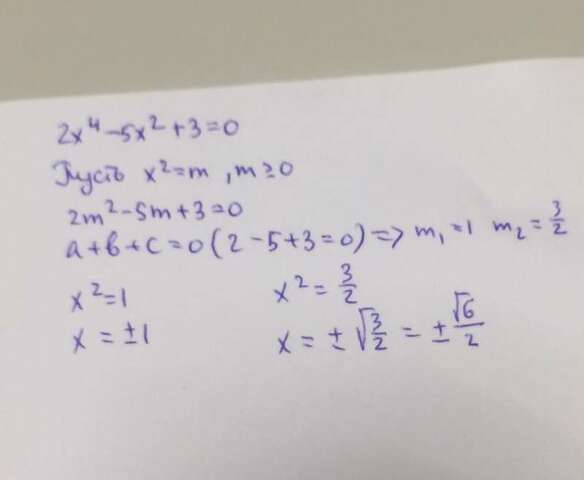 2x⁴-5x²+3=0
Пусть x²=m, m≥0
2m²-5m+3=0
a+b+c=0(2-5+3=0)=> m₁=1 m₂=3/2
x²=1 x²=3/2
x=±1 x=±√(3/2)=±√6/2